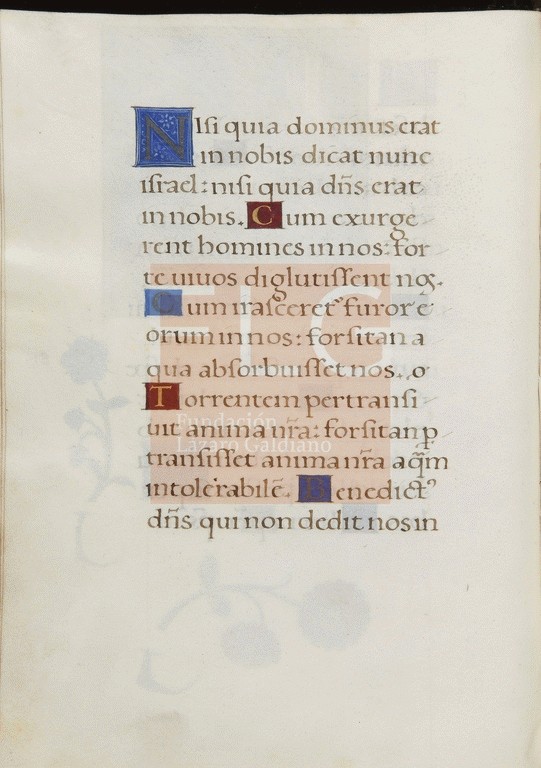 NIsi quia dominus erat
in nobis dicat nunc
israel: nisi quia dñs erat
in nobis. Cum exurge
rent homines in nos: for
te uiuos diglutissent nos.
Cum irasceret' furor e
orum in nos: forsitan a
qua absorbuisset nos. o
Torrentem pertransi
uit anima nr̃a: forsitan p
transisset anima nr̃a aq̃m
intolerabilẽ. Benedictꝰ
dñs qui non dedit nos in
FLG
Fundación
Lázaro Galdiano